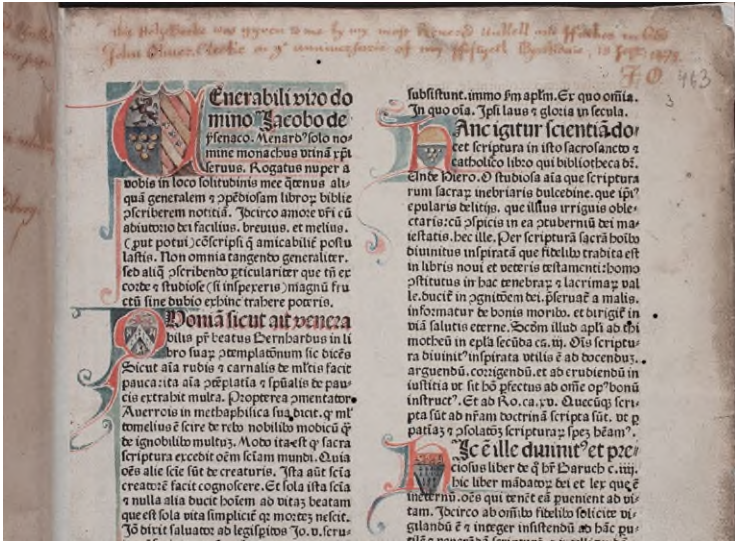 this Holy Booke was gyven to me by my most Revered Unkell and ffather in God
John Oliver Clerke on yᵉ anniversarie of my
F O 463
3
VEnerabili viro do
mino Jacobo de
ysenaco. Menardꝰ solo no⸗
mine monachus vtinā xp̄i
seruus. Rogatus nuper a
vobis in loco solitudinis mee q̄tenus ali⸗
quā generalem ⁊ ꝯpēdiosam libroꝝ biblie
ꝯscriberem notitiā. Idcirco amore vr̄i cū
adiutorio dei facilius. breuius. et melius.
(put potui) cōscripsi q̄ amicabilit̄ postu
lastis. Non omnia tangendo generaliter.
sed aliq̄ ꝯscribendo ꝑticulariter que tn̄ ex
corde ⁊ studiose (si inspexeris) magnū fru
ctū sine dubio exhinc trahere poteris.
QVoniā sicut ait venera
bilis pr̄ beatus Bernhardus in li
bro suaꝝ ꝯtemplationum sic dicēs
Sicut aīa rudis ⁊ carnalis de ml̄tis facit
pauca: ita aīa ꝯtēplatia ⁊ sp̄ualis de pau⸗
cis extrabit multa. Propterea ꝯmentator
Auerrois in methaphisica sua dicit. q̄ ml̄
tomelius ē scire de reb̄o nobilib̄o modicū q̄
de ignobilib̄o multuꝫ. Modo ita est q̄ sacra
scriptura excedit oēm sciam mundi. Quia
oēs alie scīe sūt de creaturis. Ista aūt scīa
creatorē facit cognoscere. Et sola ista scīa
⁊ nulla alia ducit hoīem ad vitaꝫ beatam
que est sola vita simplicit̄ q̄ morteꝫ nescit.
Iō dixit saluator ad legisꝑitos Jo. v. scru⸗
subsistunt. immo ẜm apl̄m. Ex quo om̄ia.
In quo oīa. Ipsi laus ⁊ gloria in secula.
HAnc igitur scientiā do⸗
cet scriptura in isto sacrosancto ⁊
catholico libro qui bibliotheca dr̄.
Unde Hiero. O studiosa aīa que scriptura
rum sacraꝝ inebriaris dulcedine. que ip̄iꝰ
epularis delitijs. que illius irriguis oble⸗
ctaris: cū ꝯspicis in ea ꝯtuberniū dei ma⸗
iestatis. hec ille. Per scripturā sacrā hoib̄o
diuinitus inspiratā que fidelib̄o tradita est
in libris noui et veteris testamenti: homo
ꝯstitutus in hac tenebraꝝ ⁊ lacrimaꝝ val
le. ducit̄ in ꝯgnitōem dei. p̄seruat̄ a malis.
informatur de bonis morib̄o. et dirigit̄ in
viā salutis eterne. Scd̄m illud apl̄i ad thi
motheū in epl̄a secūda ca. iij. Oīs scriptu⸗
ra diuinitꝰ inspirata vtilis ē ad docenduꝫ.
arguendū. corrigendū. et ad erudiendū in
iustitia vt sit hō ꝑfectus ad om̄e opꝰ bonū
instructꝰ. Et ad Ro. ca. xv. Quecūqꝫ scri⸗
pta sūt ad nr̄am doctrinā scripta sūt. vt ꝑ
patiaꝫ ⁊ ꝯsolatōꝫ scripturaꝝ speꝫ hēamꝰ.
HIc ē ille diuinitꝰ et pre⸗
ciosus liber de q̄ hr̄ Baruch c. iiij.
hic liber mādatoꝝ dei et lex que ē
ineternū. oēs qui tenēt eā ꝑuenient ad vi⸗
tam. Idcirco ab om̄ib̄o fidelib̄o solicite vi⸗
gilandū ē ⁊ integer insistendū